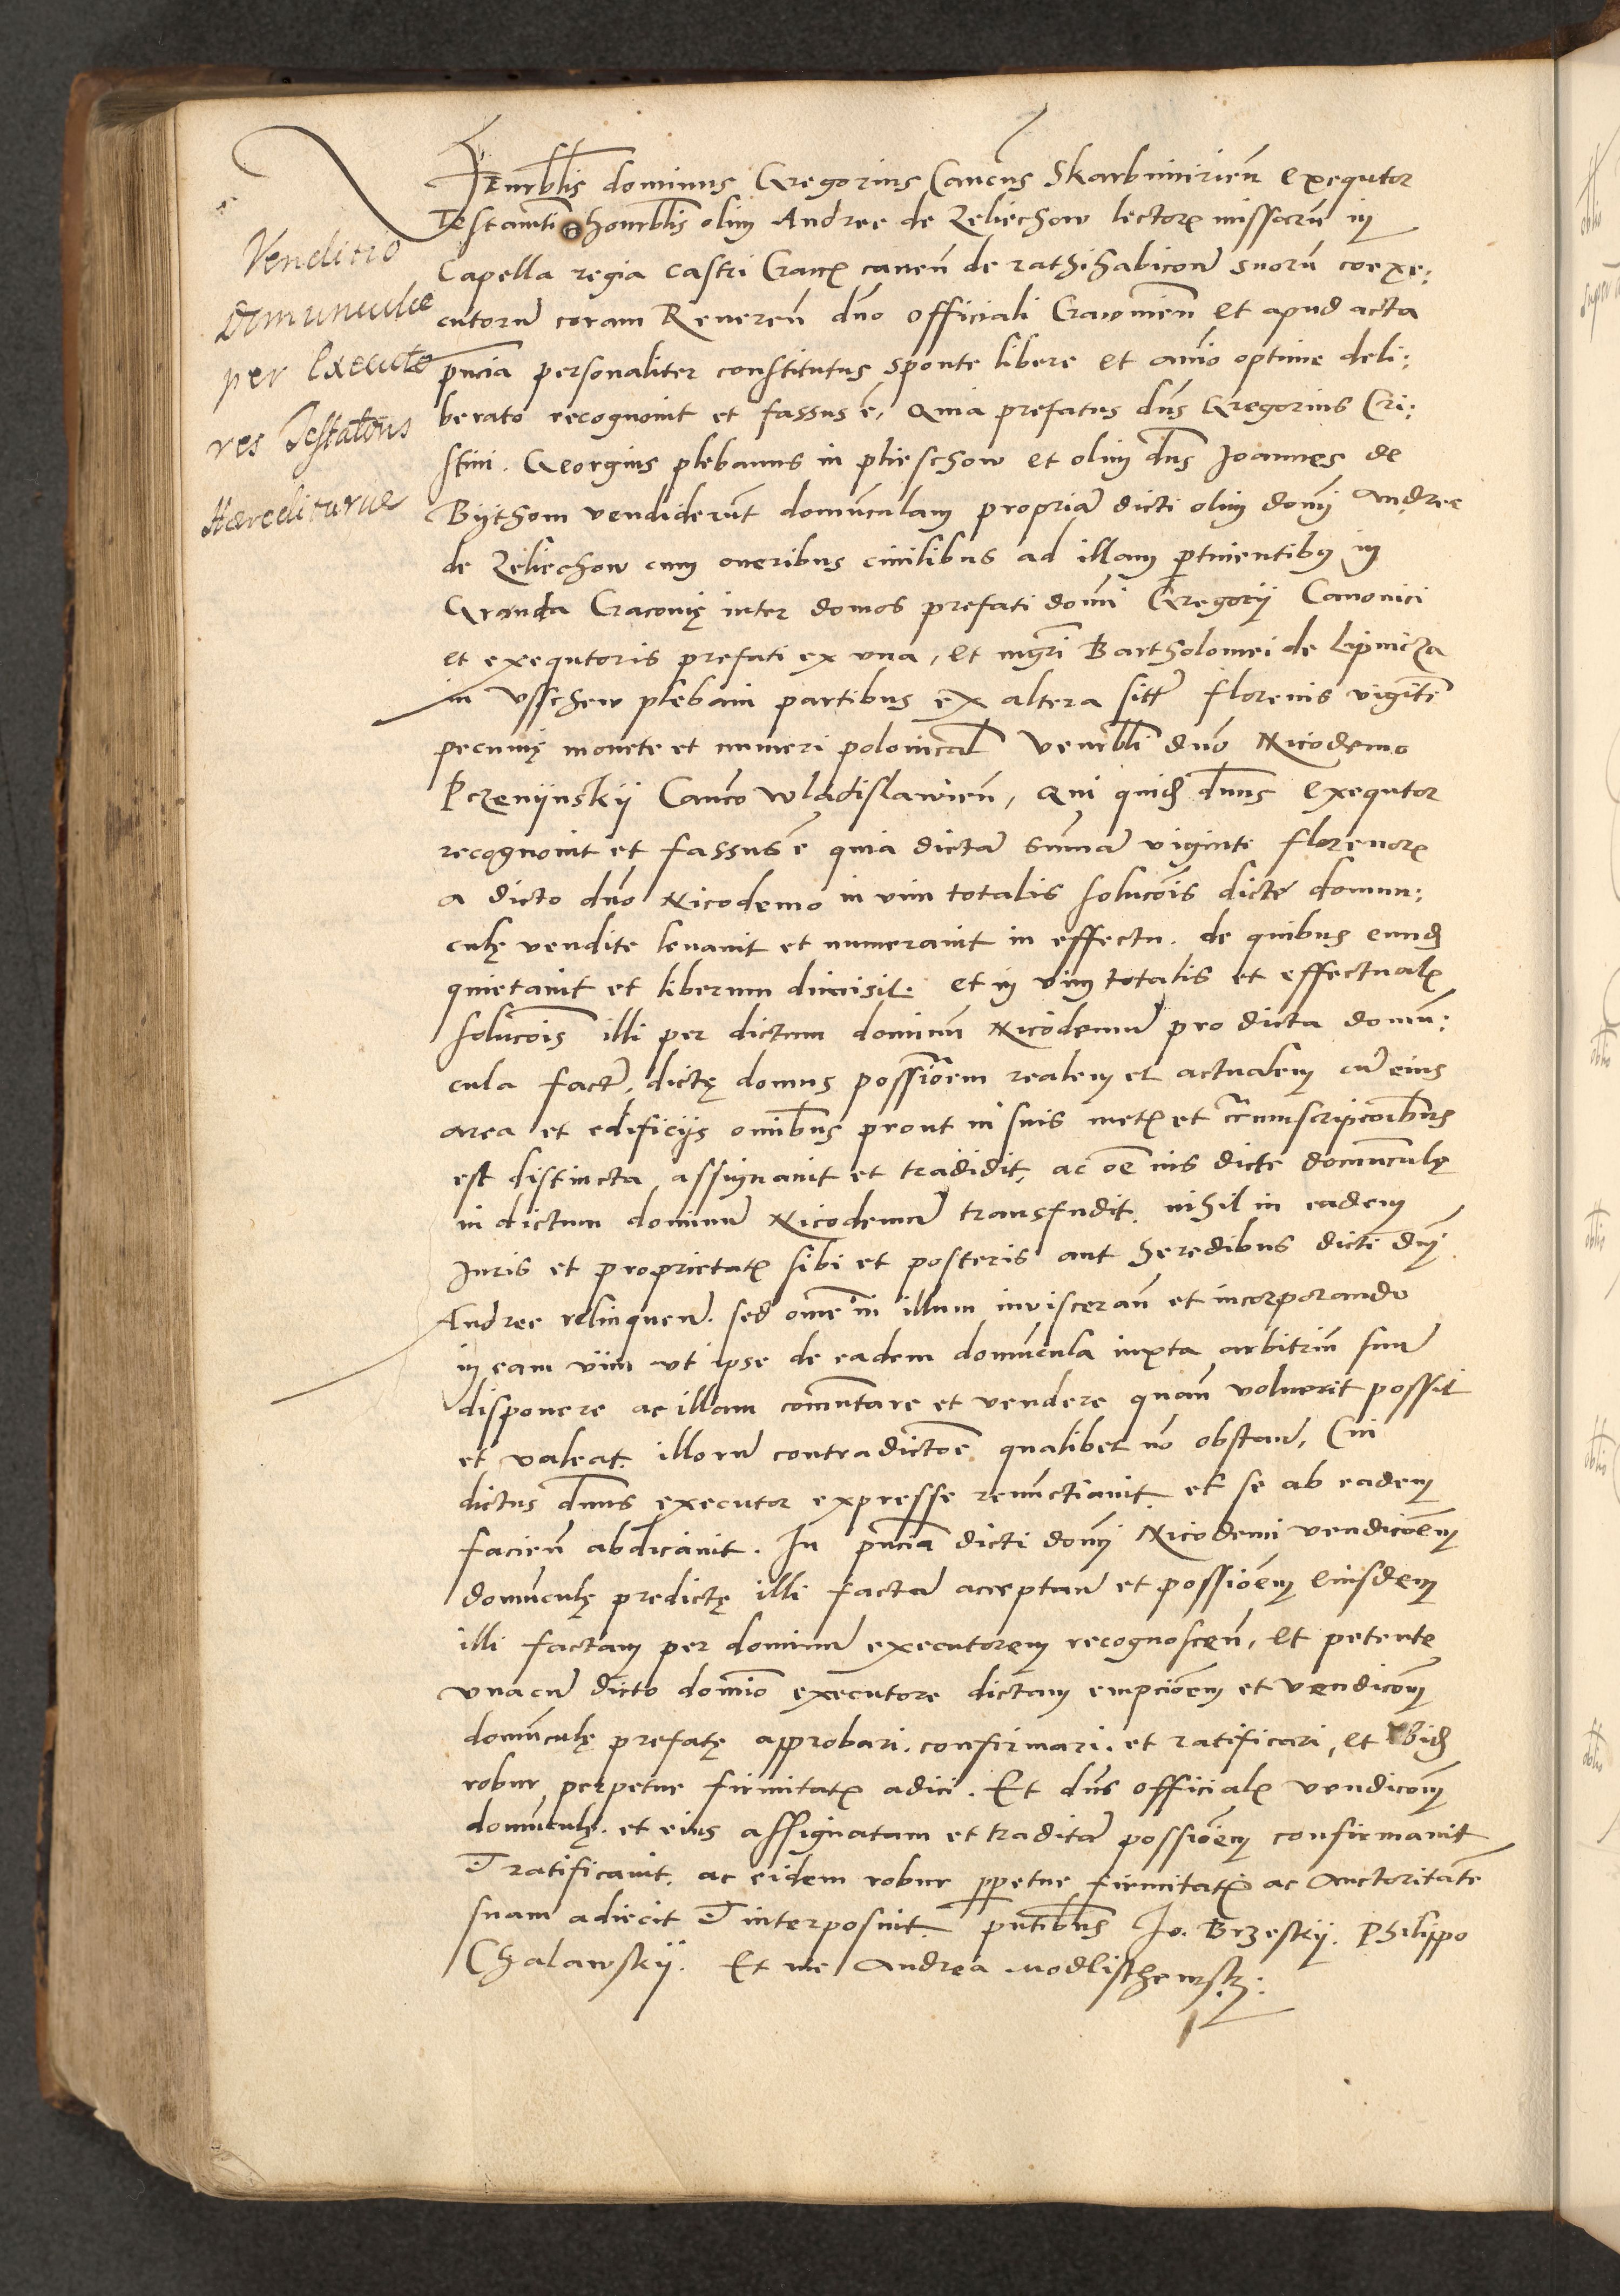 Venditio
Domunculae
per Executo
res Testatoris
Haereditariae
Venerblis dominus Gregorius Cancus Skarbimirien exequtor
Testamti honorblis olim Andree de Zeliechow lectoris missarum in
Capella regia castri Craco canen de rathihabicone suorum coexe:
cutorum coram Reveren dno officiali Cracovien et apud acta
pncia personaliter constitutus sponte libere et animo optime deli:
berato recognovit et fassus e, quia prefatus dns Gregorius Cri:
stini. Georgius plebanus in plieschow et olim dns Joannes de
Bythom vendiderunt domunculam propriam dicti olim domni Andree
de Zeliechow cum oneribus civilibus ad illam ptinentibus in
Granda Cracovie inter domos prefati domni Gregorii Canonici
et exequtoris prefati ex una, et mgri Bartholomei de Lipnicza
in Usschew plebani partibus ex altera sitt florenis viginti
pecunie monete et numeri polonical venerbli dno Nicodemo
Pczenijnskij Canco Wladislavien, qui quidem dnus exequtor
recognovit et fassus e quia dictam summam viginti florenorum
a dicto dno Nicodemo in vim totalis solucois dicte domun:
cule vendite levavit et numeravit in effectu. de quibus eundem
quietavit et liberum dimisit. et in vim totalis et effectualis
solucois illi per dictum dominum Nicodemum pro dicta domun:
cula facte, dicte domus possionem realem et actualem cum eius
area et edificijs omnibus prout in suis metis et circumscripcoibus
est distincta assignavit et tradidit, ac oe ius dicte domuncule
in dictum dominum Nicodemum transfudit. nihil in eadem
Juris et proprietatis sibi et posteris aut heredibus dicti dni
Andree relinquen. sed omne in illum invisceran et incorporando
in eam vim ut ipse de eadem domuncula iuxta arbitrium suum
disponere ac illam comutare et vendere quan voluerit possit
et valeat. illorum contradictoe qualibet no obstan, Cui
dictus dnus executor expresse renunctiavit et se ab eadem
facien abdicavit. In pncia dicti domni Nicodemi vendicoem
domuncule predicte illi factam acceptan et possioem eiusdem
illi factam per dominum executorem recognoscen, et petente
unacum dicto domino executore dictam empcioem et vendicom
domuncule prefate approbari. confirmari. et ratificari, et ibidem
robur perpetue firmitatis adici. Et dns officialis vendicom
domuncule. et eius assignatam et traditam possioem confirmavit
et ratificavit. ac eidem robur ppetue firmitatis ac Auctoritatem
suam adiecit et interposuit. pntibus Jo. Brzeskij. Philippo
Chalawskij. Et me Andrea Modlischewsk: